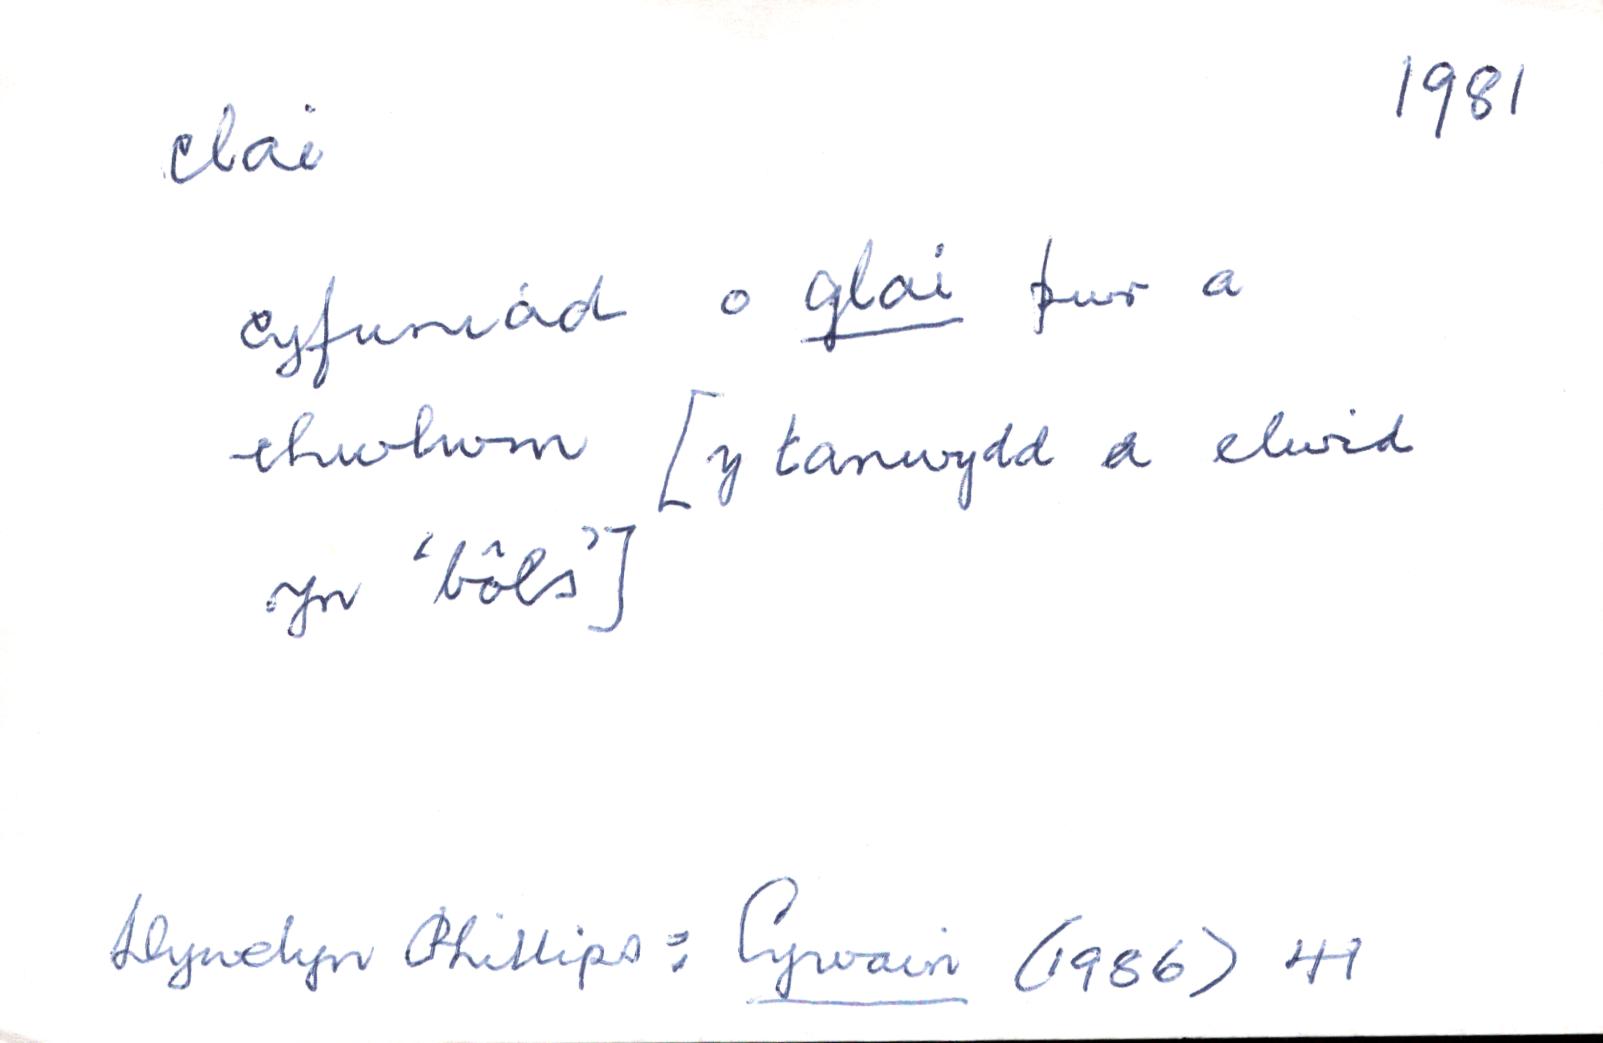 1981
clai
cyfuniad o glai pur a
chwlwm [y tanwydd a elwid
yn 'bôls']
Llywelyn Phillips: Cywain (1986) 41